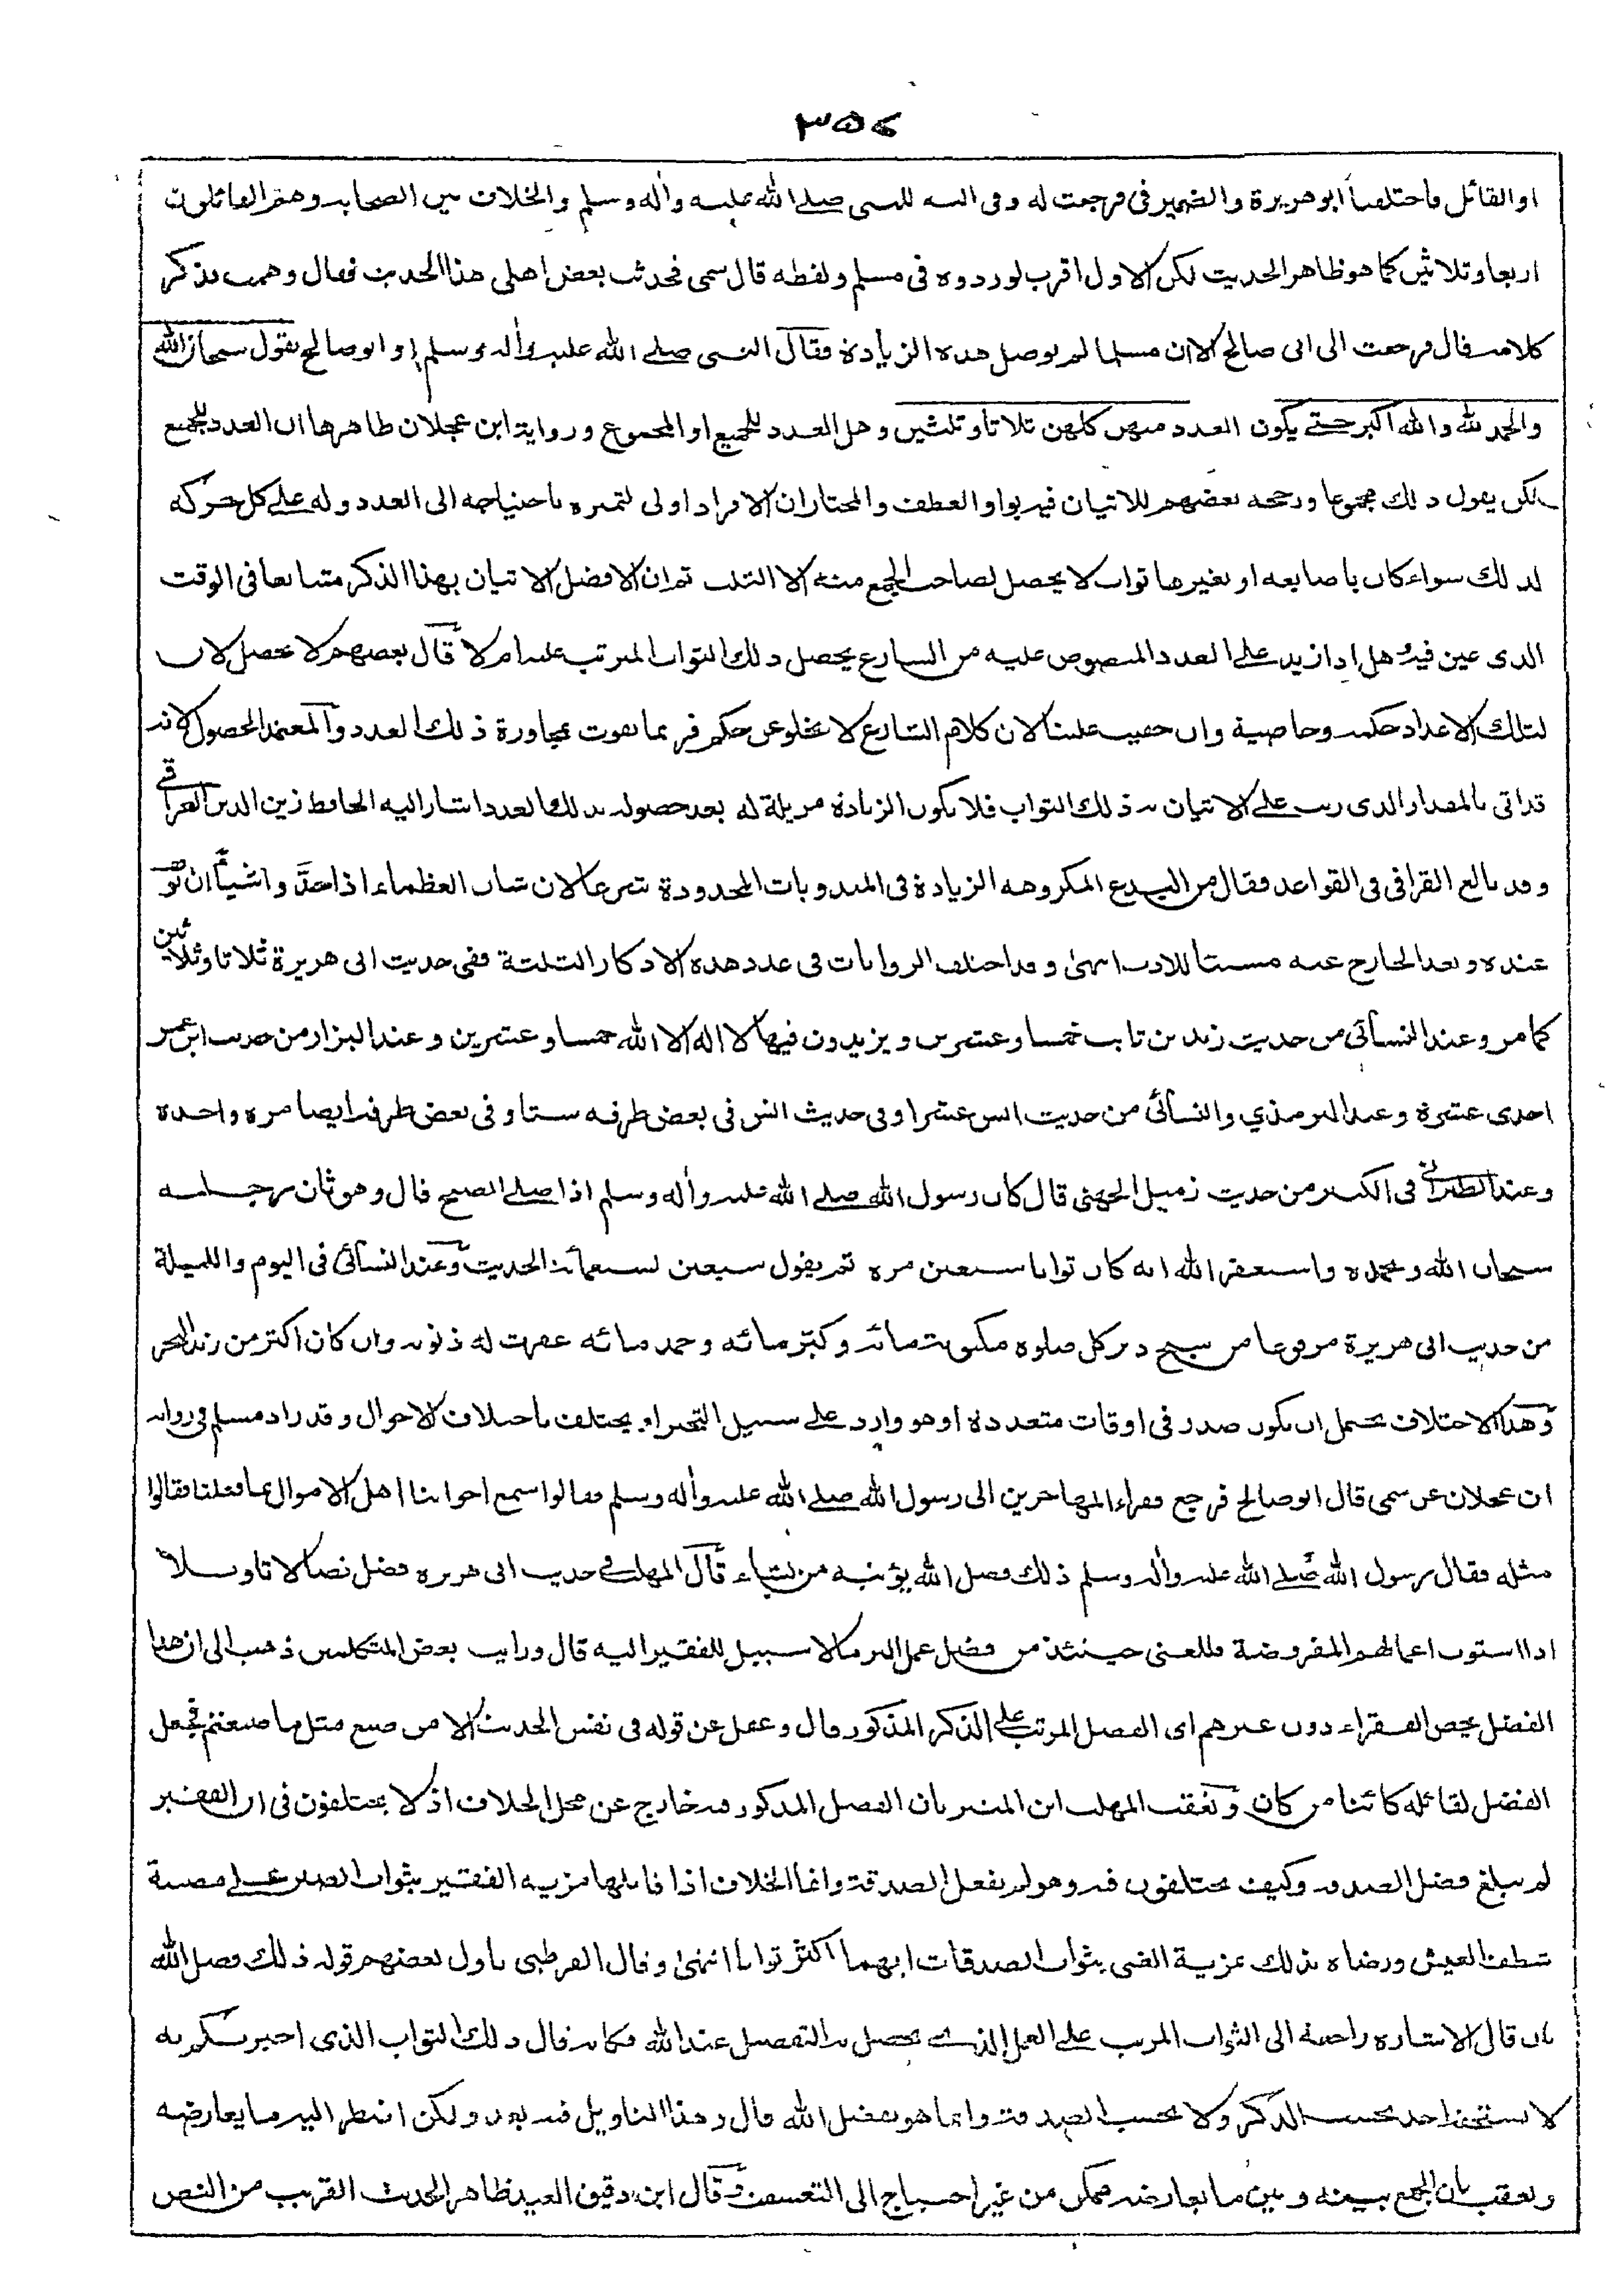 ٣٥٤
او القائل فاختلفنا ابو هريرة والضمير فى فرجعت له وفى اليه للنبى صلے الله عليه وأله وسلم والخلاف بين الصحابه وهم القائلون
اربعا وثلاثين كما هو ظاهر الحديث لكن الاول اقرب لوروده فى مسلم ولفظه قال سمى فحدثت بعض اهلى هذا الحديث فقال وهمت فذكر
كلامه قال فرجعت الى ابى صالح الا ان مسلما لم يوصل هذه الزيادة فقال النبى صلے الله عليه وأله وسلم او ابو صالح تقول سبحان الله
والحمد لله والله اكبر حتے يكون العدد منهن كلهن ثلاثا وثلثين وهل العدد للجميع او المجموع ورواية ابن عجلان ظاهرها ان العدد للجميع
لكن يقول ذلك مجموعا ورجحه بعضهم للاتيان فيه بواو العطف والمختار ان الافراد اولى لتميزه باحتياجه الى العدد وله علے كل حركة
لذلك سواء كان باصابعه او بغيرها ثواب لا يحصل لصاحب الجمع منه الا الثلث ثم ان الافضل الاتيان بهذا الذكر متتابعا فى الوقت
الذى عين فيه وهل اذا زيد علے العدد المنصوص عليه من الشارع يحصل ذلك الثواب المترتب عليه ام لا قال بعضهم لا يحصل لان
لتلك الاعداد حكمة وخاصية وان خفيت علينا لان كلام الشارع لا يخلو عن حكم فربما تفوت بمجاوزة ذلك العدد والمعتمد الحصول لانه
قد اتى بالمقدار الذى رتب علے الاتيان به ذلك الثواب فلا تكون الزيادة مزيلة له بعد حصوله بذلك العدد اشار اليه الحافظ زين الدين العراقے
وقد بالغ القرافى فى القواعد فقال من البدع المكروهه الزيادة فى المندوبات المحدودة شرعا لان شان العظماء اذا حدّوا شيئاً ان توقف
عنده ويعد الخارج عنه مسيئا للادب انتهىٰ وقد اختلف الروايات فى عدد هذه الاذكار الثلثة ففى حديث ابى هريرة ثلاثا وثلاثين
كما مر وعند النسآئى من حديث زيد بن ثابت خمسا وعشرين ويزيدون فيها لا اله الا الله خمسا وعشرين وعند البزار من حديث ابن عمر
احدى عشرة وعند الترمذي والنسآئى من حديث انس عشرا وفى حديث انس فى بعض طرقه ستا وفى بعض طرقه ايضا مره واحده
وعند الطبرانے فى الكبير من حديث زميل الجهنى قال كان رسول الله صلے الله عليه وأله وسلم اذا صلے الصبح قال وهو ثان رجليه
سبحان الله وبحمده واستغفر الله انه كان توابا سبعين مره ثم يقول سبعين بسبعمائة الحديث وعند النسآئى فى اليوم والليلة
من حديث ابى هريرة مرفوعا من سبح دبر كل صلوه مكتوبة مائة وكبّر مائه وحمد مائه غفرت له ذنوبه وان كان اكثر من زبد البحر
وهذا الاختلاف يحتمل ان يكون صدر فى اوقات متعددة او هو وارد علے سبيل التخيير او يختلف باختلاف الاحوال وقد زاد مسلم فى رواية
ابن عجلان عن سمى قال ابو صالح فرجع فقراء المهاجرين الى رسول الله صلے الله عليه وأله وسلم فقالوا سمع اخواننا اهل الاموال بما فعلنا فقالوا
مثله فقال رسول الله صلے الله عليه وأله وسلم ذلك فضل الله يؤتيه من يشاء قال المهلب فى حديث ابى هريره فضل نصا لا تاويلا
اذا استوت اعمالهم المفروضة فللغنى حينئذ من فضل عمل البر ما لا سبيل للفقير اليه قال ورايت بعض المتكلمين ذهب الى ان هذا
الفضل يخص الفقراء دون غيرهم اى الفضل المرتب على الذكر المذكور قال وغفل عن قوله فى نفس الحديث الا من صنع مثل ما صنعتم فجعل
الفضل لقائله كائنا من كان وتعقب المهلب ابن المنير بان الفضل المذكور فيه خارج عن محل الخلاف اذ لا يختلفون فى ان الفقير
لم يبلغ فضل الصدقه وكيف يختلفون فيه وهو لم يفعل الصدقة وانما الخلاف اذا قابلها مزيه الفقير بثواب الصبر علے مصيبة
شظف العيش ورضاه بذلك بمزية الغنى بثواب الصدقات ايهما اكثر ثوابا انتهىٰ وقال القرطبى تاول بعضهم قوله ذلك فضل الله
بان قال الاشاره راجعة الى الثواب المرتب علے العمل الذى يحصل به التفضيل عند الله فكانه قال ذلك الثواب الذى اخبرتكم به
لا يستحقه احد بحسب الذكر ولا بحسب الصدقة وانما هو بفضل الله قال وهذا التاويل فيه بعد ولكن اضطر اليه ما يعارضه
وتعقب بان الجمع بينه وبين ما يعارضه ممكن من غير احتياج الى التعسف وقال ابن دقيق العيد ظاهر الحديث القريب من النص